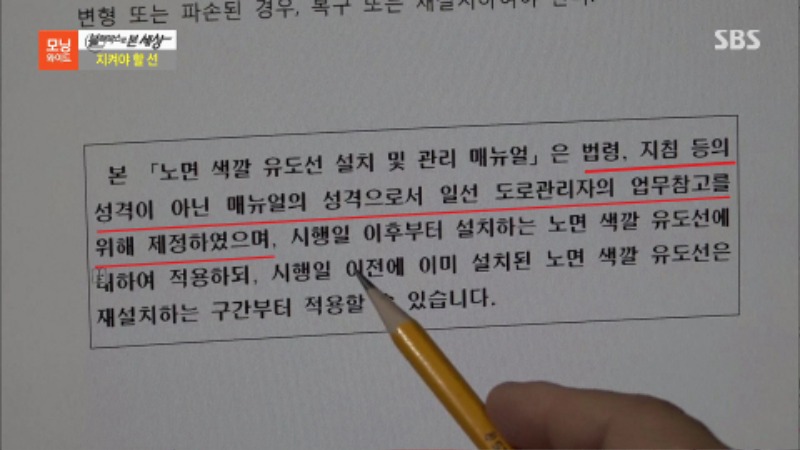 변형 또는 파손된 경우, 복구 또는 재설치하여야 한다.
모닝
와이드
블랙박스로 본 세상
지켜야 할 선
SBS
본 「노면 색깔 유도선 설치 및 관리 매뉴얼」은 법령, 지침 등의
성격이 아닌 매뉴얼의 성격으로서 일선 도로관리자의 업무참고를
위해 제정하였으며, 시행일 이후부터 설치하는 노면 색깔 유도선에
대하여 적용하되, 시행일 이전에 이미 설치된 노면 색깔 유도선은
재설치하는 구간부터 적용할 있습니다.